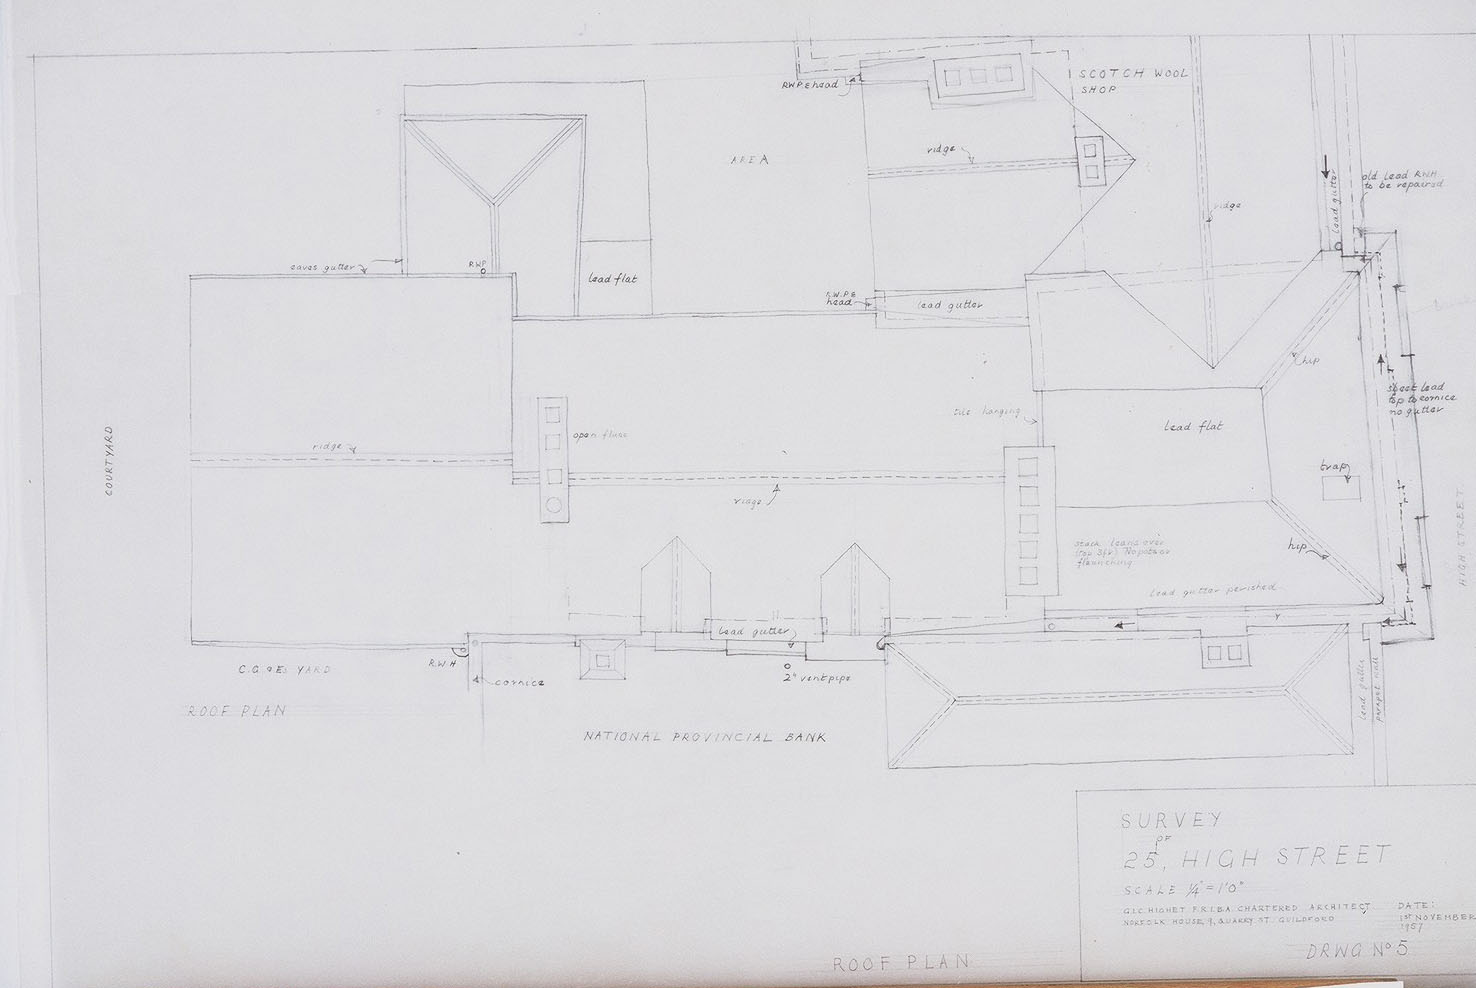 RWP & head
SCOTCH WOOL
SHOP
AREA
ridge
ridge
lead gutter
old lead RWH
to be repaired
eaves gutter
RWP
lead flat
R.W.P &
head
lead gutter
hip
sheet lead
top to cornice
no gutter
tile hanging
lead flat
COURTYARD
open flues
ridge
trap
ridge
HIGH STREET.
stack leans over
flaunching
hip
lead gutter perished
lead gutter
R.W.H
YARD
cornice
2" ventpipe
lead gutter
parapet wall
ROOF PLAN
NATIONAL PROVINCIAL BANK
SURVEY
OF
25, HIGH STREET
SCALE ¼"=1'0"
G.I.C. HIGHET F.R.I.B.A. CHARTERED ARCHITECT
NORFOLK HOUSE, 9, QUARRY ST. GUILDFORD
DATE:
1ST NOVEMBER
1957
ROOF PLAN
DRWG Nº 5